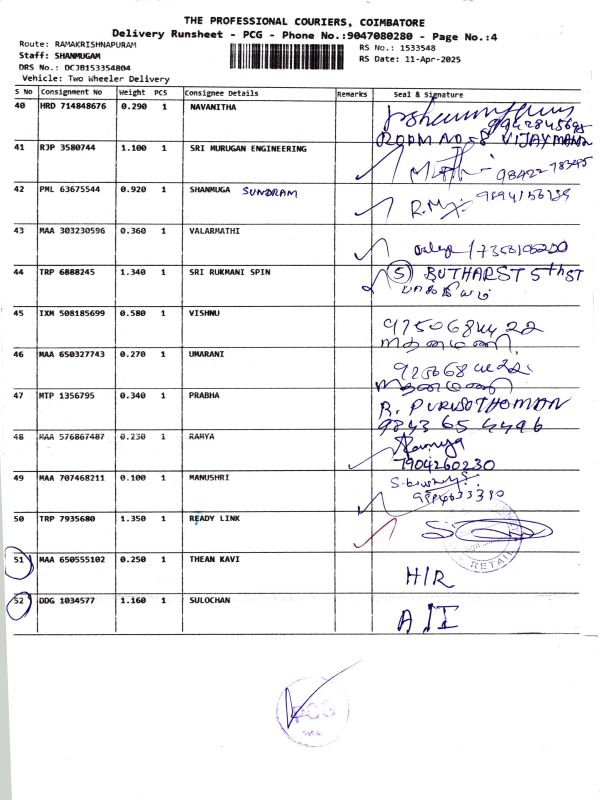 THE PROFESSIONAL COURIERS, COIMBATORE
Delivery Runsheet - PCG - Phone No.:9047080280 - Page No.:4
Route: RAMAKRISHNAPURAM
RS No.: 1533548
Staff: SHANMUGAM
RS Date: 11-Apr-2025
DRS No.: DCJB153354804
Vehicle: Two Wheeler Delivery
S No Consignment No Weight PCS Consignee Details Remarks Seal & Signature
40 HRD 714848676 0.290 1 NAVANITHA
ROOM NO-8 VIJAY MANA
41 RJP 3580744 1.100 1 SRI MURUGAN ENGINEERING
42 PML 63675544 0.920 1 SHANMUGA SUNDRAM
43 MAA 303230596 0.360 1 VALARMATHI
44 TRP 6888245 1.340 1 SRI RUKMANI SPIN 5 BUTHARST 5th ST
45 IXM 508185699 0.580 1 VISHNU
46 MAA 650327743 0.270 1 UMARANI
47 MTP 1356795 0.340 1 PRABHA R. PURUSOTHOMAN
9843 65 4496
48 MAA 576867487 0.230 1 RAMYA Ramya
7904260230
49 MAA 707468211 0.100 1 MANUSHRI
50 TRP 7935680 1.350 1 READY LINK
RETAIL
51 MAA 650555102 0.250 1 THEAN KAVI H/R
52 DDG 1034577 1.160 1 SULOCHAN A/I
PCG